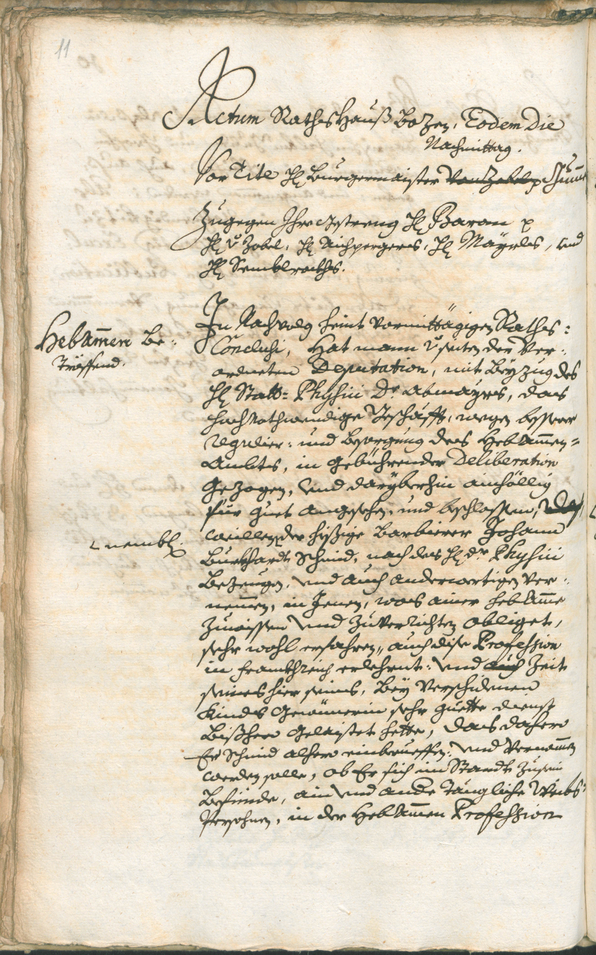 11
Actum Rathshauß Bozen, Eodem Die
Nachmittag.
Vor Tite H: Burgermaister
Zugegen Ihro Gestreng H: Baram p
H: v Zobel, H: Aichpergers, H: Mayrls, und
H: Semblrockhs.
Hebamen Be-
treffend.
In Nachvolg heint vormittägigen Raths-
Conclusi, Hat man v seiten der Ver-
ordneten Deputation, mit Beyzug des
H: Statt-Physici Dr Abmayrs, das
hochnothwendige Geschäfft, wegen besserer
regulier- und Besorgung des Hebamen-
Ambts, in gebührender Deliberation
Gezogen, und darüberhin ainhöllig
für Guet angesehen, und beschlossen, das
nembl:
weillen der hiesige Barbierer Johann
Burkhardt Schmid, nach des H: Dr Physici
Bezeugen, und auch anderwertigen Ver-
nemmen, in Jenen, was ainer Hebame
Zuwissen und Zuverrichten obliget,
sehr wohl erfahren, auch dise Profession
in Frankhreich erlehrnt: und Zeit
seines hierseins, Bey verschidenen
Kindts Gewinnerin sehr guette dienst
Bißhero Gelaistet hette, das dahero
Er Schmid alhero einberueffen, und vernommen
werden solle, ob Er sich im Standt Zusein
Befünde, ain und andere taugliche Weibs-
Persohnen, in der Hebamen Profession